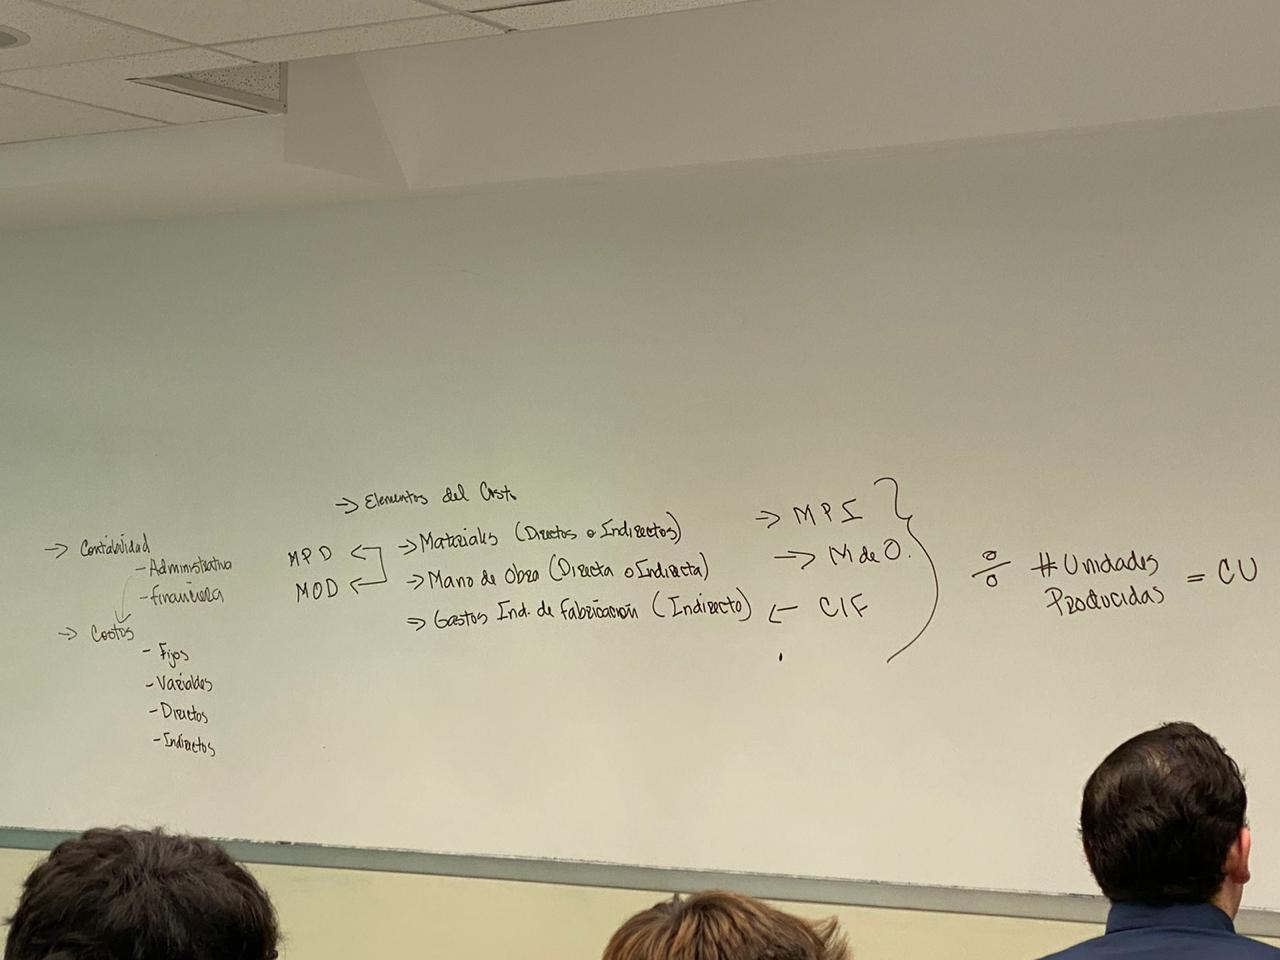 → Contabilidad
- Administrativa
- Financiera
→ Costos
- Fijos
- Variables
- Directos
- Indirectos
→ Elementos del Costo
MPD ← → Materiales (Directos o Indirectos) → MPI
MOD ← → Mano de Obra (Directa o Indirecta) → M de O.
⇒ Gastos Ind. de Fabricación (Indirecto) ← CIF
÷ # Unidades
Producidas = CU